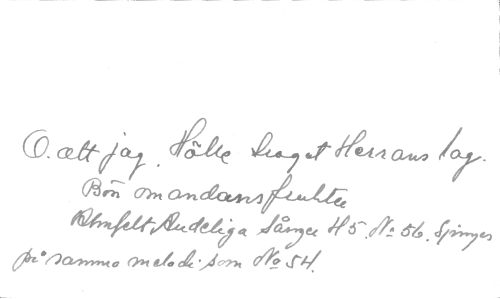 O. att jag Hölle traget Herrans lag.
Bön om andans frukter
Ahnfelt Andeliga Sånger H5. No 56. Sjunges
på samma melodi som No 54.